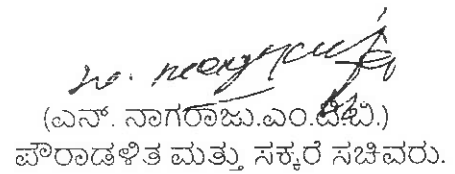 (ಎನ್. ನಾಗರಾಜು.ಎಂ.ಟಿ.ಬಿ.)
ಪೌರಾಡಳಿತ ಮತ್ತು ಸಕ್ಕರೆ ಸಚಿವರು.